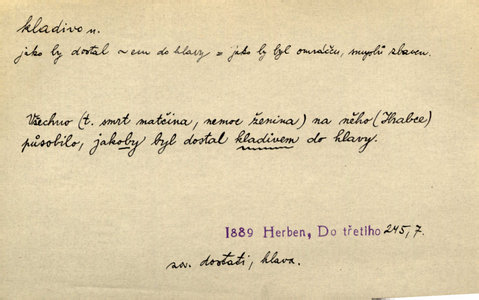 kladivo n.
jako by dostal ~em do hlavy = jako by byl omráčen, smyslů zbaven.
Všechno (t. smrt matčina, nemoc ženina) na něho (Hrabce)
působilo, jakoby byl dostal kladivem do hlavy.
1889 Herben, Do třetího 245, 7.
sr. dostati, hlava.